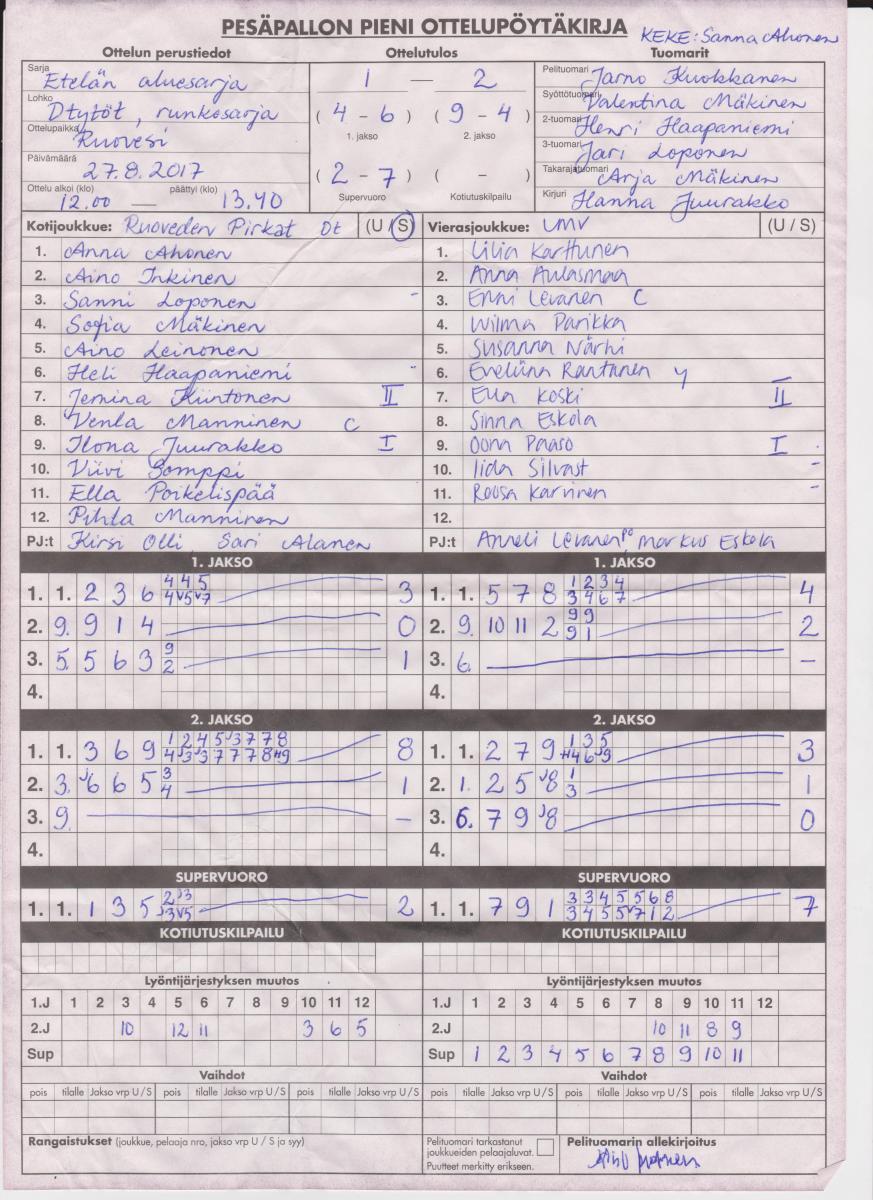 PESÄPALLON PIENI OTTELUPÖYTÄKIRJA KEKE: Sanna Ahonen
Ottelun perustiedot Ottelutulos Tuomarit
Sarja Etelän aluesarja 1 — 2 Pelituomari Jarno Kuokkanen
Lohko Dtytöt, runkosarja ( 4 - 6 ) ( 9 - 4 ) Syöttötuomari Valentina Mäkinen
Ottelupaikka Ruovesi 1. jakso 2. jakso 2-tuomari Henri Haapaniemi
Päivämäärä 27.8.2017 ( 2 - 7 ) ( - ) 3-tuomari Jari Loponen
Takarajatuomari Arja Mäkinen
Ottelu alkoi (klo) 12.00 päättyi (klo) 13.40 Supervuoro Kotiutuskilpailu Kirjuri Hanna Juurakko
Kotijoukkue: Ruoveden Pirkat Dt (U / S) Vierasjoukkue: UMV (U / S)
1. Anna Ahonen 1. Lilia Karttunen
2. Aino Inkinen 2. Anna Aulasmaa
3. Sanni Loponen - 3. Enni Levanen C
4. Sofia Mäkinen 4. Wilma Parikka
5. Aino Leinonen 5. Susanna Närhi
6. Heli Haapaniemi - 6. Eveliina Rantanen y
7. Jemina Kiintonen II 7. Ella Koski II
8. Venla Manninen C 8. Sinna Eskola
9. Ilona Juurakko I 9. Oona Paaso I
10. Viivi Somppi 10. Iida Silvast -
11. Ella Poikelispää 11. Roosa Karvinen -
12. Pihla Manninen 12.
PJ:t Kirsi Olli, Sari Alanen PJ:t Anneli Levanen PO, Markus Eskola
1. JAKSO 1. JAKSO
4 4 5 1 2 3 4
1. 1. 2 3 6 4 v5 v7 3 1. 1. 5 7 8 3 4 6 7 4
9 9
2. 9. 9 1 4 0 2. 9. 10 11 2 9 1 2
9
3. 5. 5 6 3 2 1 3. 6. –
4. 4.
2. JAKSO 2. JAKSO
1 2 4 5 J3 7 7 8 1 3 5
1. 1. 3 6 9 4 J3 J3 7 7 7 8 H9 8 1. 1. 2 7 9 H4 6 J9 3
3 1
2. 3. J6 6 5 4 1 2. 1. 2 5 J8 3 1
3. 9. – 3. 6. 7 9 J8 0
4. 4.
SUPERVUORO SUPERVUORO
2 J3 3 3 4 5 5 6 8
1. 1. 1 3 5 J3 v5 2 1. 1. 7 9 1 3 4 5 5 v7 1 2 7
KOTIUTUSKILPAILU KOTIUTUSKILPAILU
Lyöntijärjestyksen muutos Lyöntijärjestyksen muutos
1.J 1 2 3 4 5 6 7 8 9 10 11 12 1.J 1 2 3 4 5 6 7 8 9 10 11 12
2.J 10 12 11 3 6 5 2.J 10 11 8 9
Sup Sup 1 2 3 4 5 6 7 8 9 10 11
Vaihdot Vaihdot
pois tilalle Jakso vrp U / S pois tilalle Jakso vrp U / S pois tilalle Jakso vrp U / S pois tilalle Jakso vrp U / S pois tilalle Jakso vrp U / S pois tilalle Jakso vrp U / S
Rangaistukset (joukkue, pelaaja nro, jakso vrp U / S ja syy) Pelituomari tarkastanut Pelituomarin allekirjoitus
joukkueiden pelaajaluvat.
Puutteet merkitty erikseen.